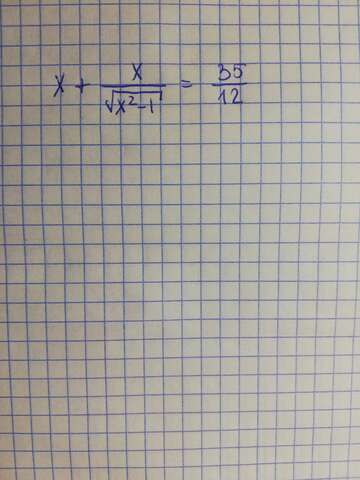 x + x/√(x²-1) = 35/12